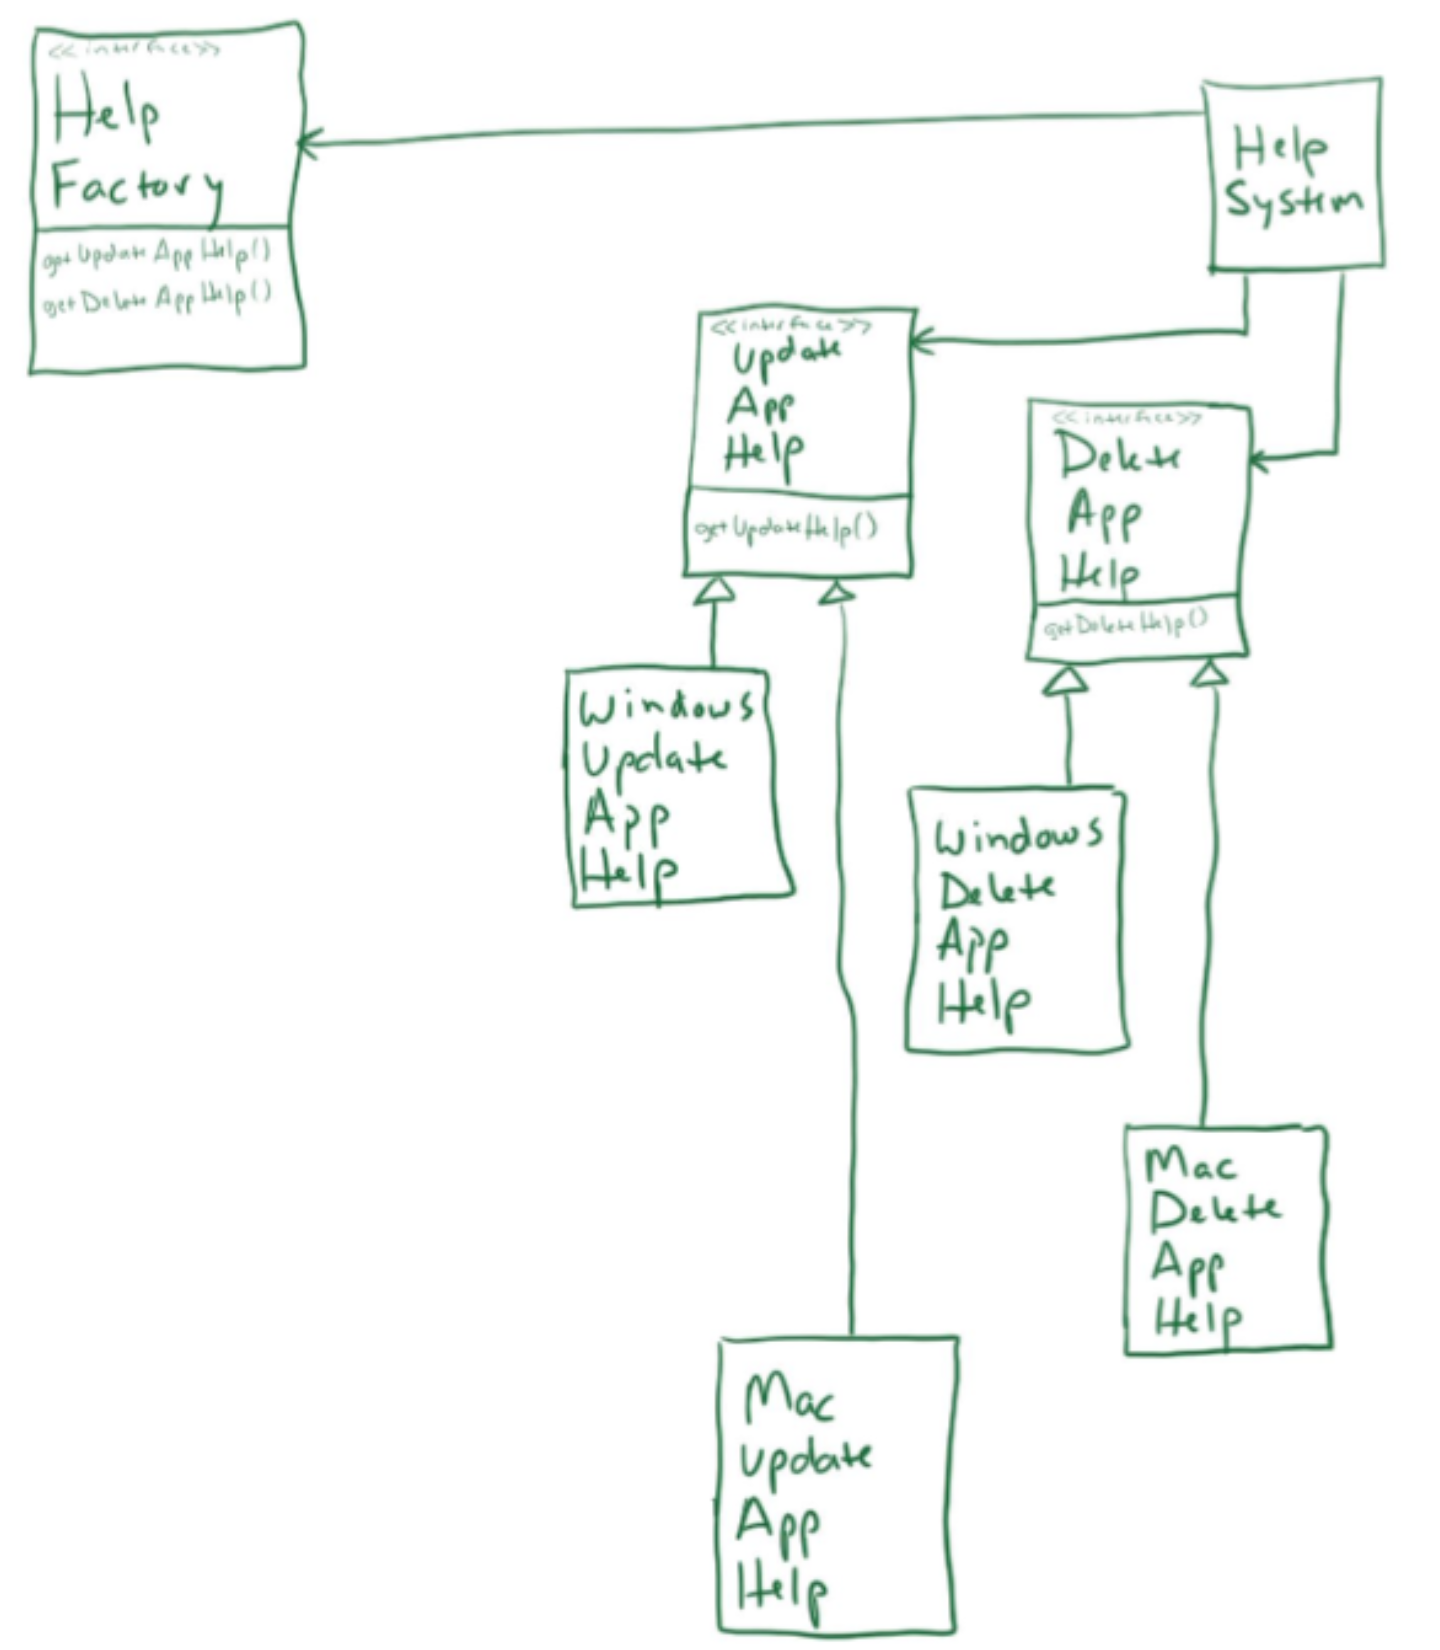 <<interface>>
Help
Factory
getUpdateAppHelp()
getDeleteAppHelp()
Help
System
<<interface>>
Update
App
Help
getUpdateHelp()
<<interface>>
Delete
App
Help
getDeleteHelp()
Windows
Update
App
Help
Windows
Delete
App
Help
Mac
Delete
App
Help
Mac
Update
App
Help